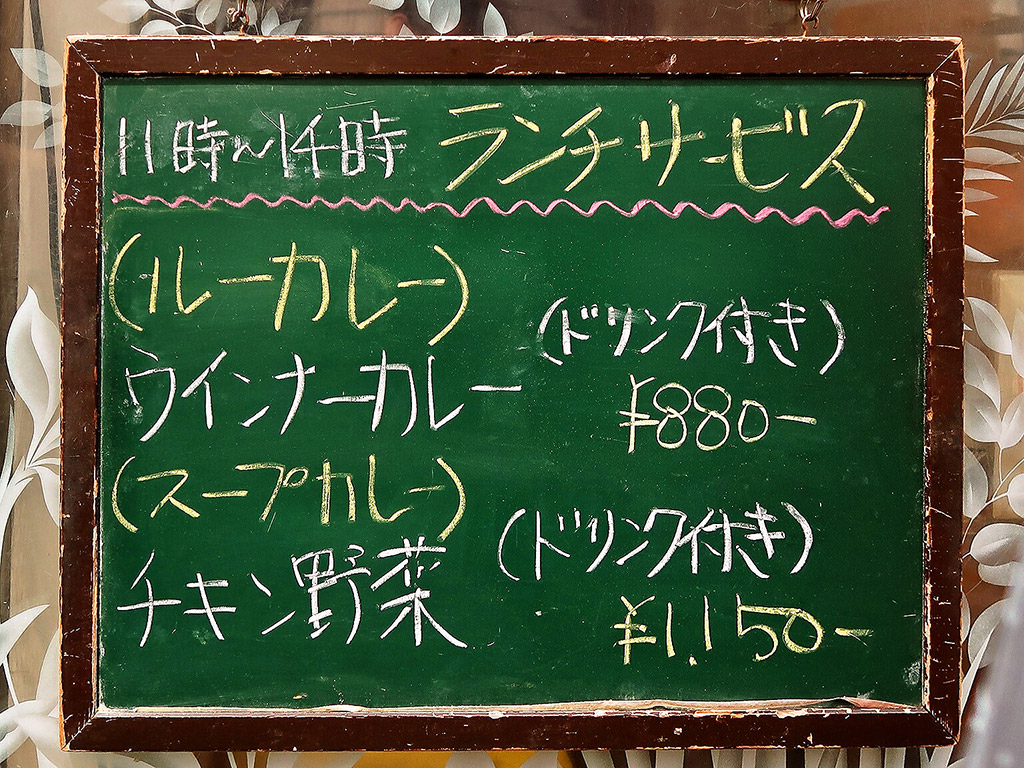 11時〜14時 ランチサービス
(ルーカレー)
ウインナーカレー
(ドリンク付き)
¥880-
(スープカレー)
チキン野菜
(ドリンク付き)
¥1.150-